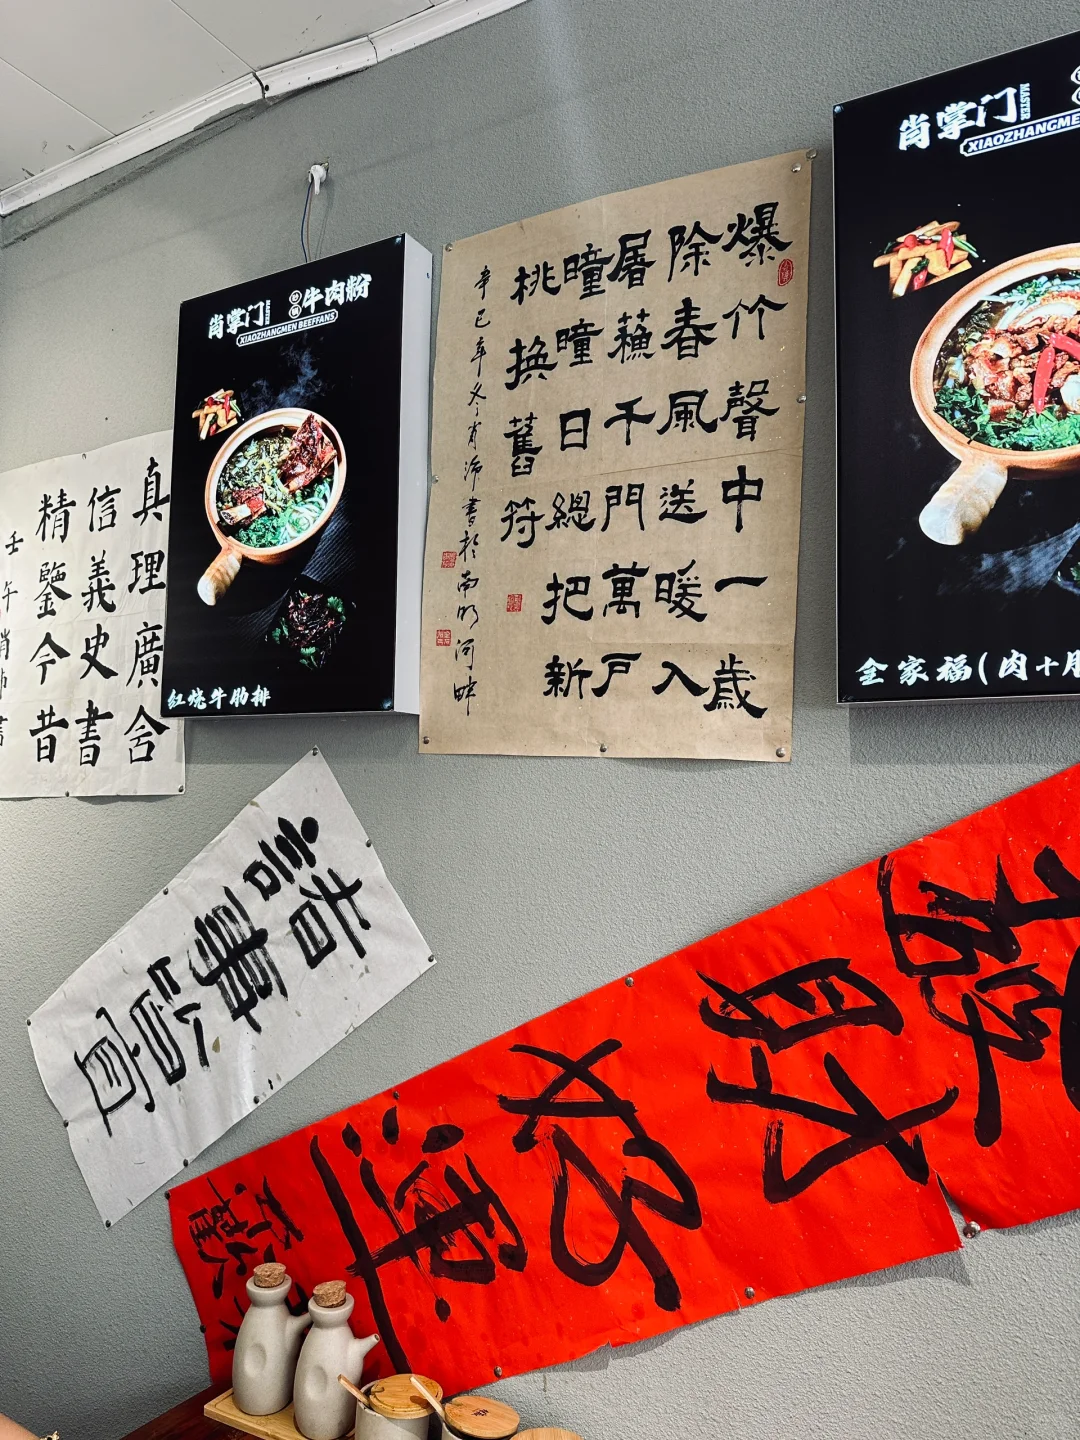 真理廣含
信義史書
精鑒今昔
壬午肖沛書
肖掌门 MASTER 砂锅 牛肉粉
XIAOZHANGMEN BEEFFANS
红烧牛肋排
爆竹聲中一歲
除春風送暖入
屠蘓千門萬戸
瞳瞳日總把新
桃換舊符
辛巳年冬肖沛書於南明河畔
肖掌门 MASTER
XIAOZHANGME
全家福(肉+肋
諸事皆宜
接財好運